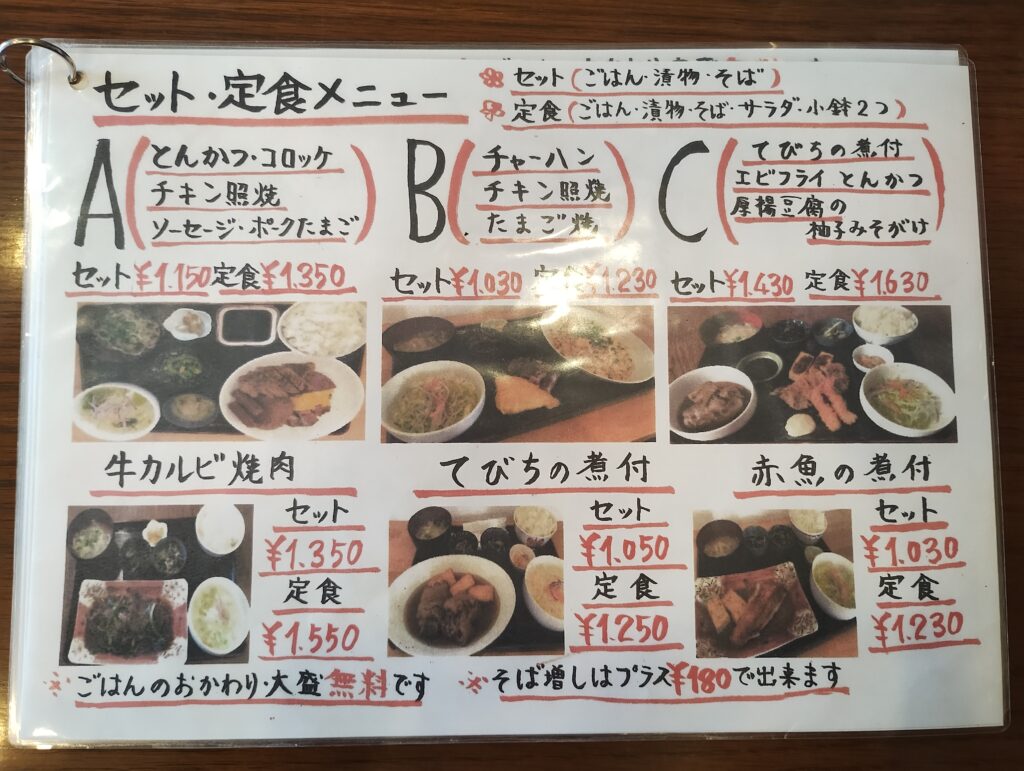 セット・定食メニュー
セット(ごはん・漬物・そば)
定食(ごはん・漬物・そば・サラダ・小鉢2つ)
A
とんかつ・コロッケ
チキン照焼
ソーセージ・ポークたまご
セット¥1.150 定食¥1.350
B
チャーハン
チキン照焼
たまご焼
セット¥1.030 定食¥1.230
C
てびちの煮付
エビフライ とんかつ
厚揚豆腐の
柚子みそがけ
セット¥1.430 定食¥1.630
牛カルビ焼肉
セット
¥1.350
定食
¥1.550
てびちの煮付
セット
¥1.050
定食
¥1.250
赤魚の煮付
セット
¥1.030
定食
¥1.230
※ごはんのおかわり・大盛無料です
※そば増しはプラス¥180で出来ます